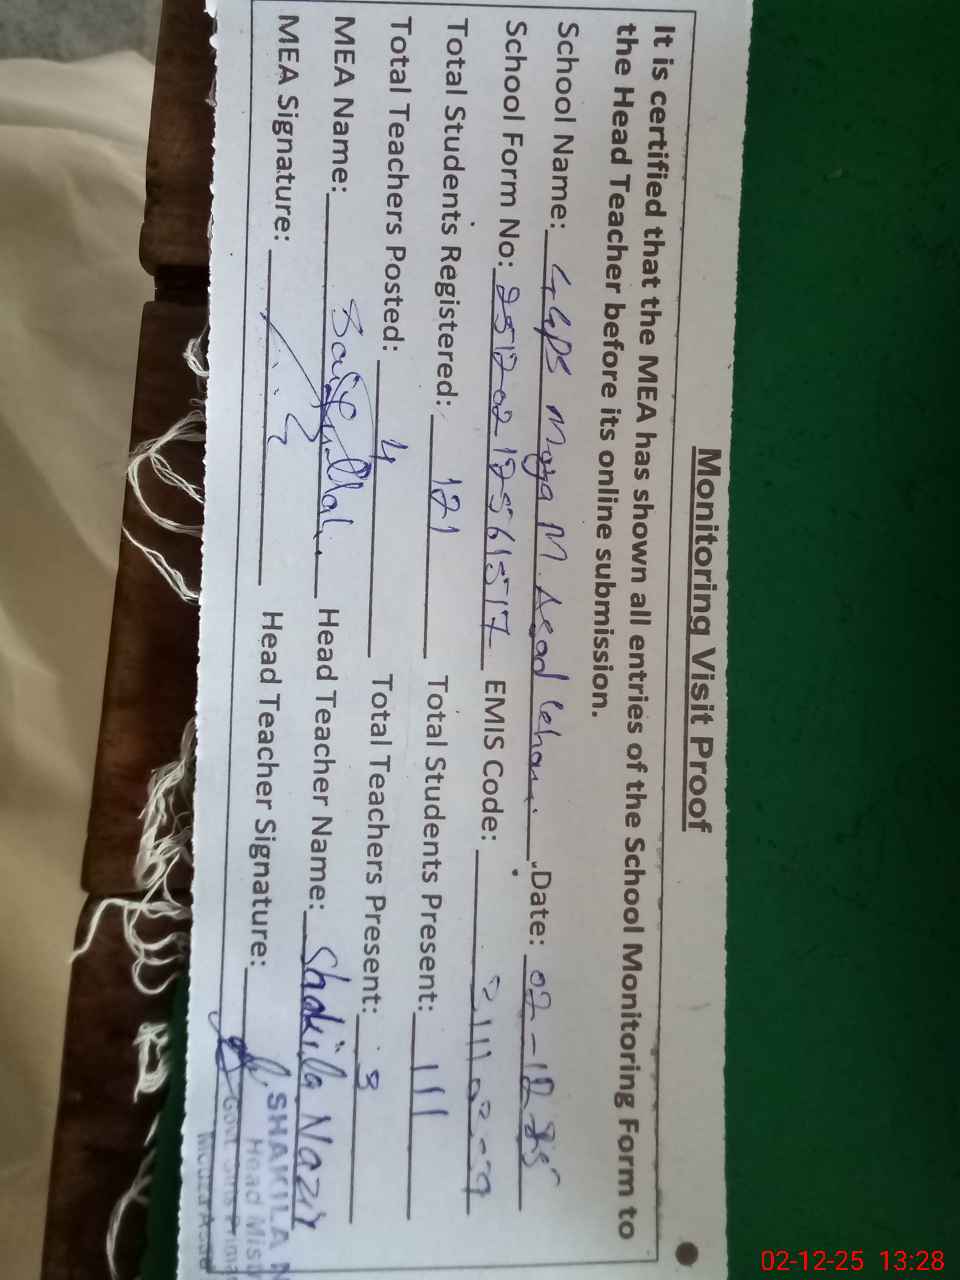 Monitoring Visit Proof
It is certified that the MEA has shown all entries of the School Monitoring Form to
the Head Teacher before its online submission.
School Name: GGPS Moza M. Asad Date: 02-12-25
School Form No: EMIS Code:
Total Students Registered: 121 Total Students Present: 111
Total Teachers Posted: 4 Total Teachers Present: 3
MEA Name: Saifullah Head Teacher Name: Shakila Nazir
MEA Signature: Head Teacher Signature:
SHAKILA N
Head Mist
Govt Girls Prima
Mouza Asad
02-12-25 13:28